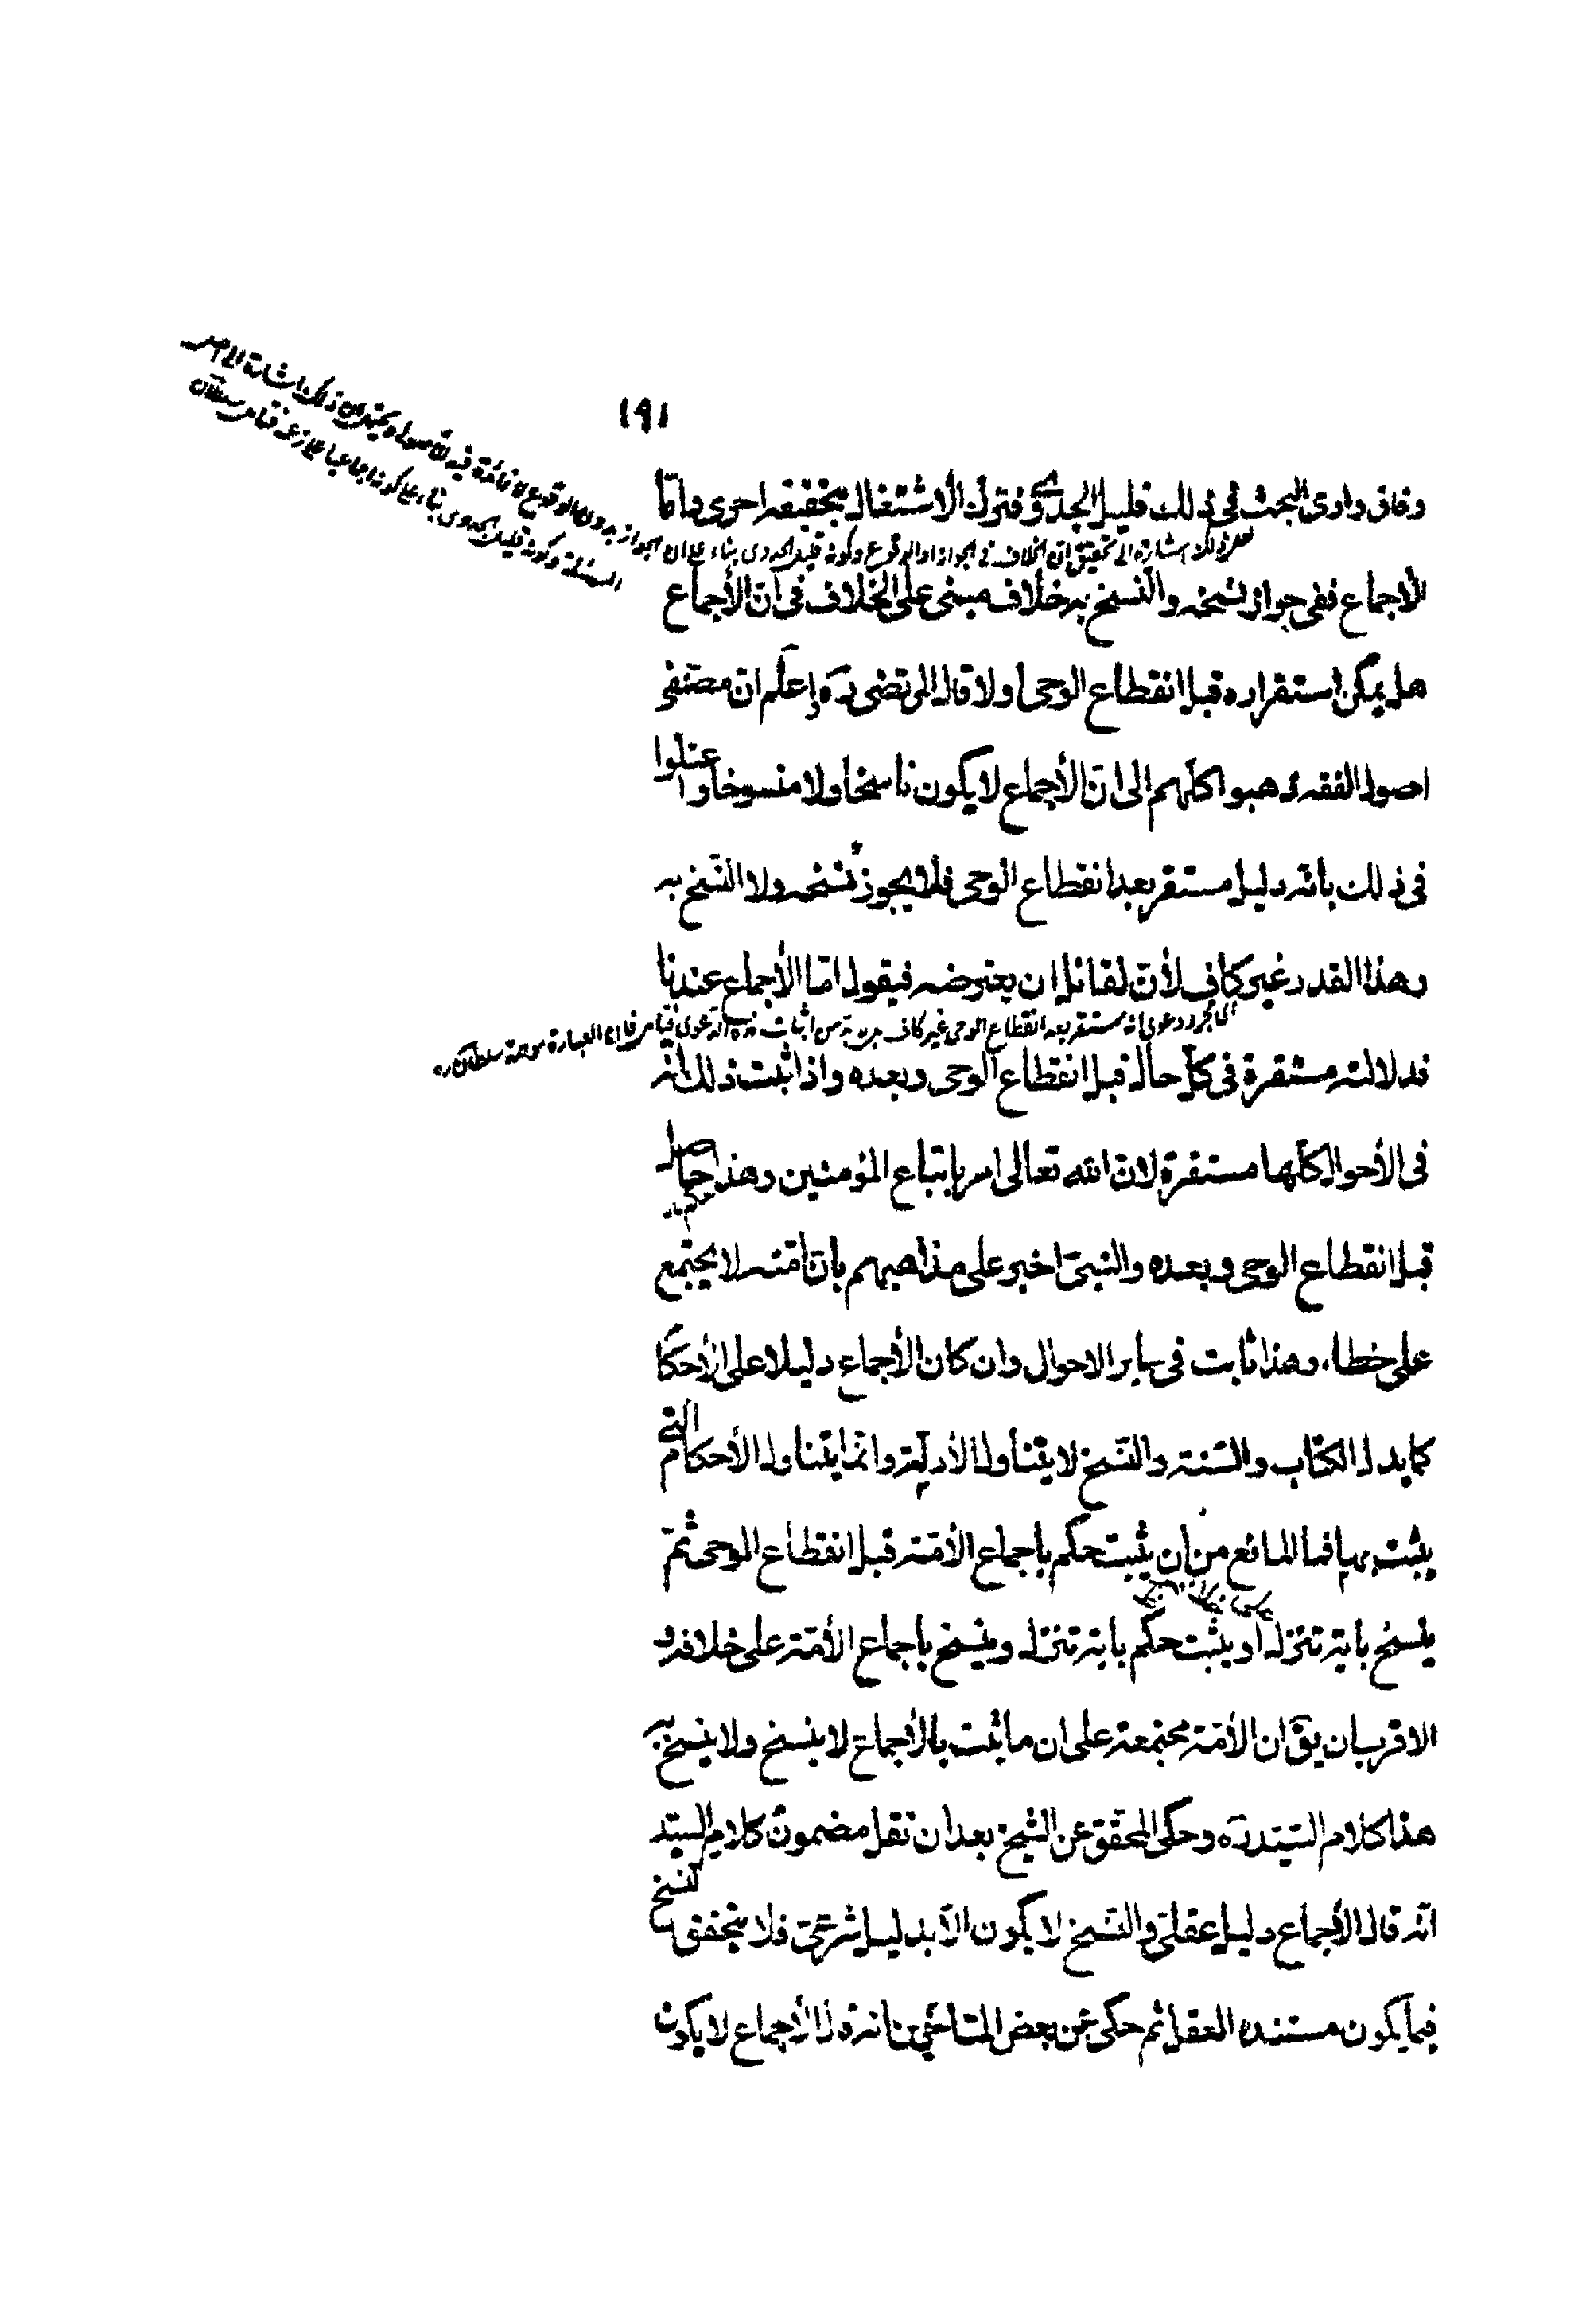 ١٩١
وفاق وادى البحث فى ذلك قليل الجدوى فترك الأشتغال بتحقيقه احرى واما
الأجماع ففى جواز نسخه والنسخ به خلاف مبنى على الخلاف فى ان الأجماع
هل يمكن استقراره قبل انقطاع الوحى اولا قال المرتضى ره واعلم ان مصنفى
اصول الفقه ذهبوا كلهم الى ان الأجماع لا يكون ناسخا ولا منسوخا واعتلوا
فى ذلك بانه دليل مستقر بعد انقطاع الوحى فلا يجوز نسخه ولا النسخ به
وهذا القدر غير كاف لأن لقائل ان يعترضه فيقول اما الأجماع عندنا
اى مجرد دعوى انه مستقر بعد انقطاع الوحى غير كاف بل لابد من اثبات هذه الدعوى فتامل فان العبارة موهمة سلطان ره
فدلالته مستقرة فى كل حال قبل انقطاع الوحى وبعده واذا ثبت ذلك انه
فى الأحوال كلها مستقرة لان الله تعالى امر باتباع المؤمنين وهذا حاصل
قبل انقطاع الوحى وبعده والنبى اخبر على مذاهبهم بان امته لا يجتمع
على خطاء وهذا ثابت فى ساير الاحوال وان كان الأجماع دليلا على الأحكا
كما يدل الكتاب والسنة والنسخ لا يتناول الأدلة وانما يتناول الأحكام التى
يثبت بها فما المانع من ان يثبت حكم باجماع الأمة قبل انقطاع الوحى ثم
ينسخ باية تنزل او يثبت حكم باية تنزل وينسخ باجماع الأمة على خلافه و
الاقرب ان يق ان الأمة مجتمعة على ان ما يثبت بالأجماع لا ينسخ ولا ينسخ به
هذا كلام السيد ره وحكى المحقق عن الشيخ بعد ان نقل مضمون كلام السيد
انه قال الأجماع دليل عقلى والنسخ لا يكون الا بدليل شرعى فلا يتحقق النسخ
فيما يكون مستنده العقل ثم حكى عن بعض المتاخرين انه قال الأجماع لا يكون